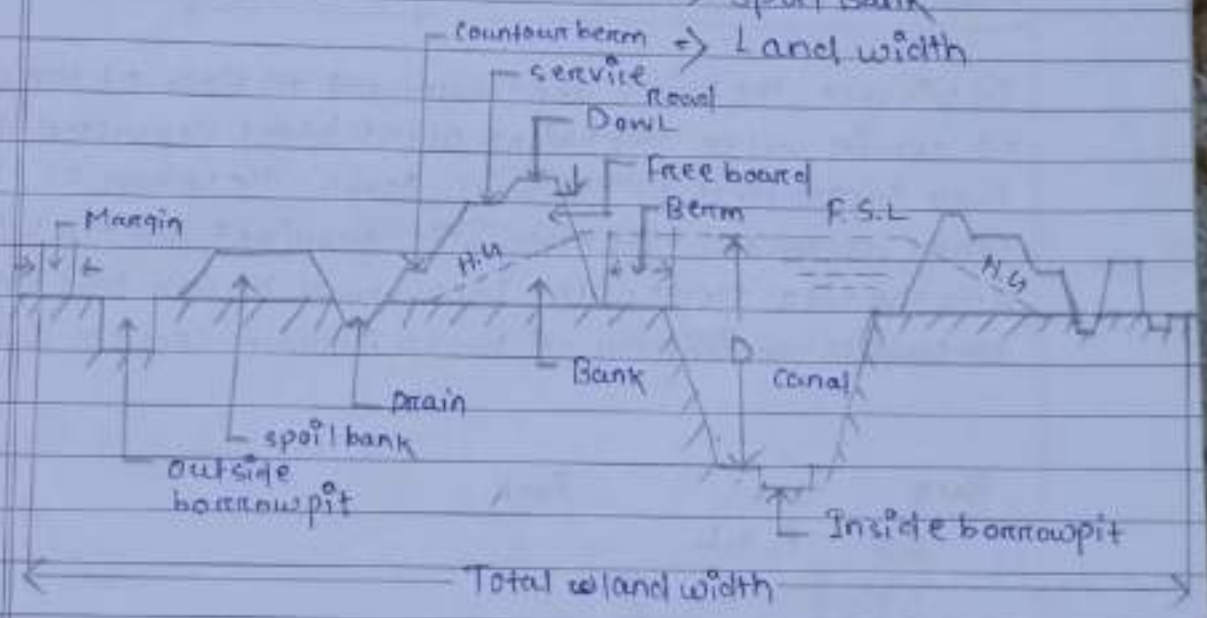 → Spoil Bank
Countour berm → Land width
service
Road
Dowl
Free board
Berm F.S.L
Margin
H.G
H.G
D
Bank
Canal
Drain
spoil bank
outside
borrowpit
Inside borrowpit
Total land width